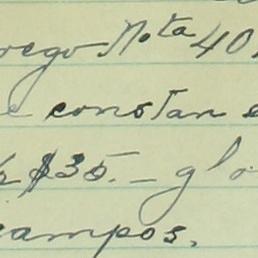 rego Nota 40
e constan e
$35.- glo
campos.